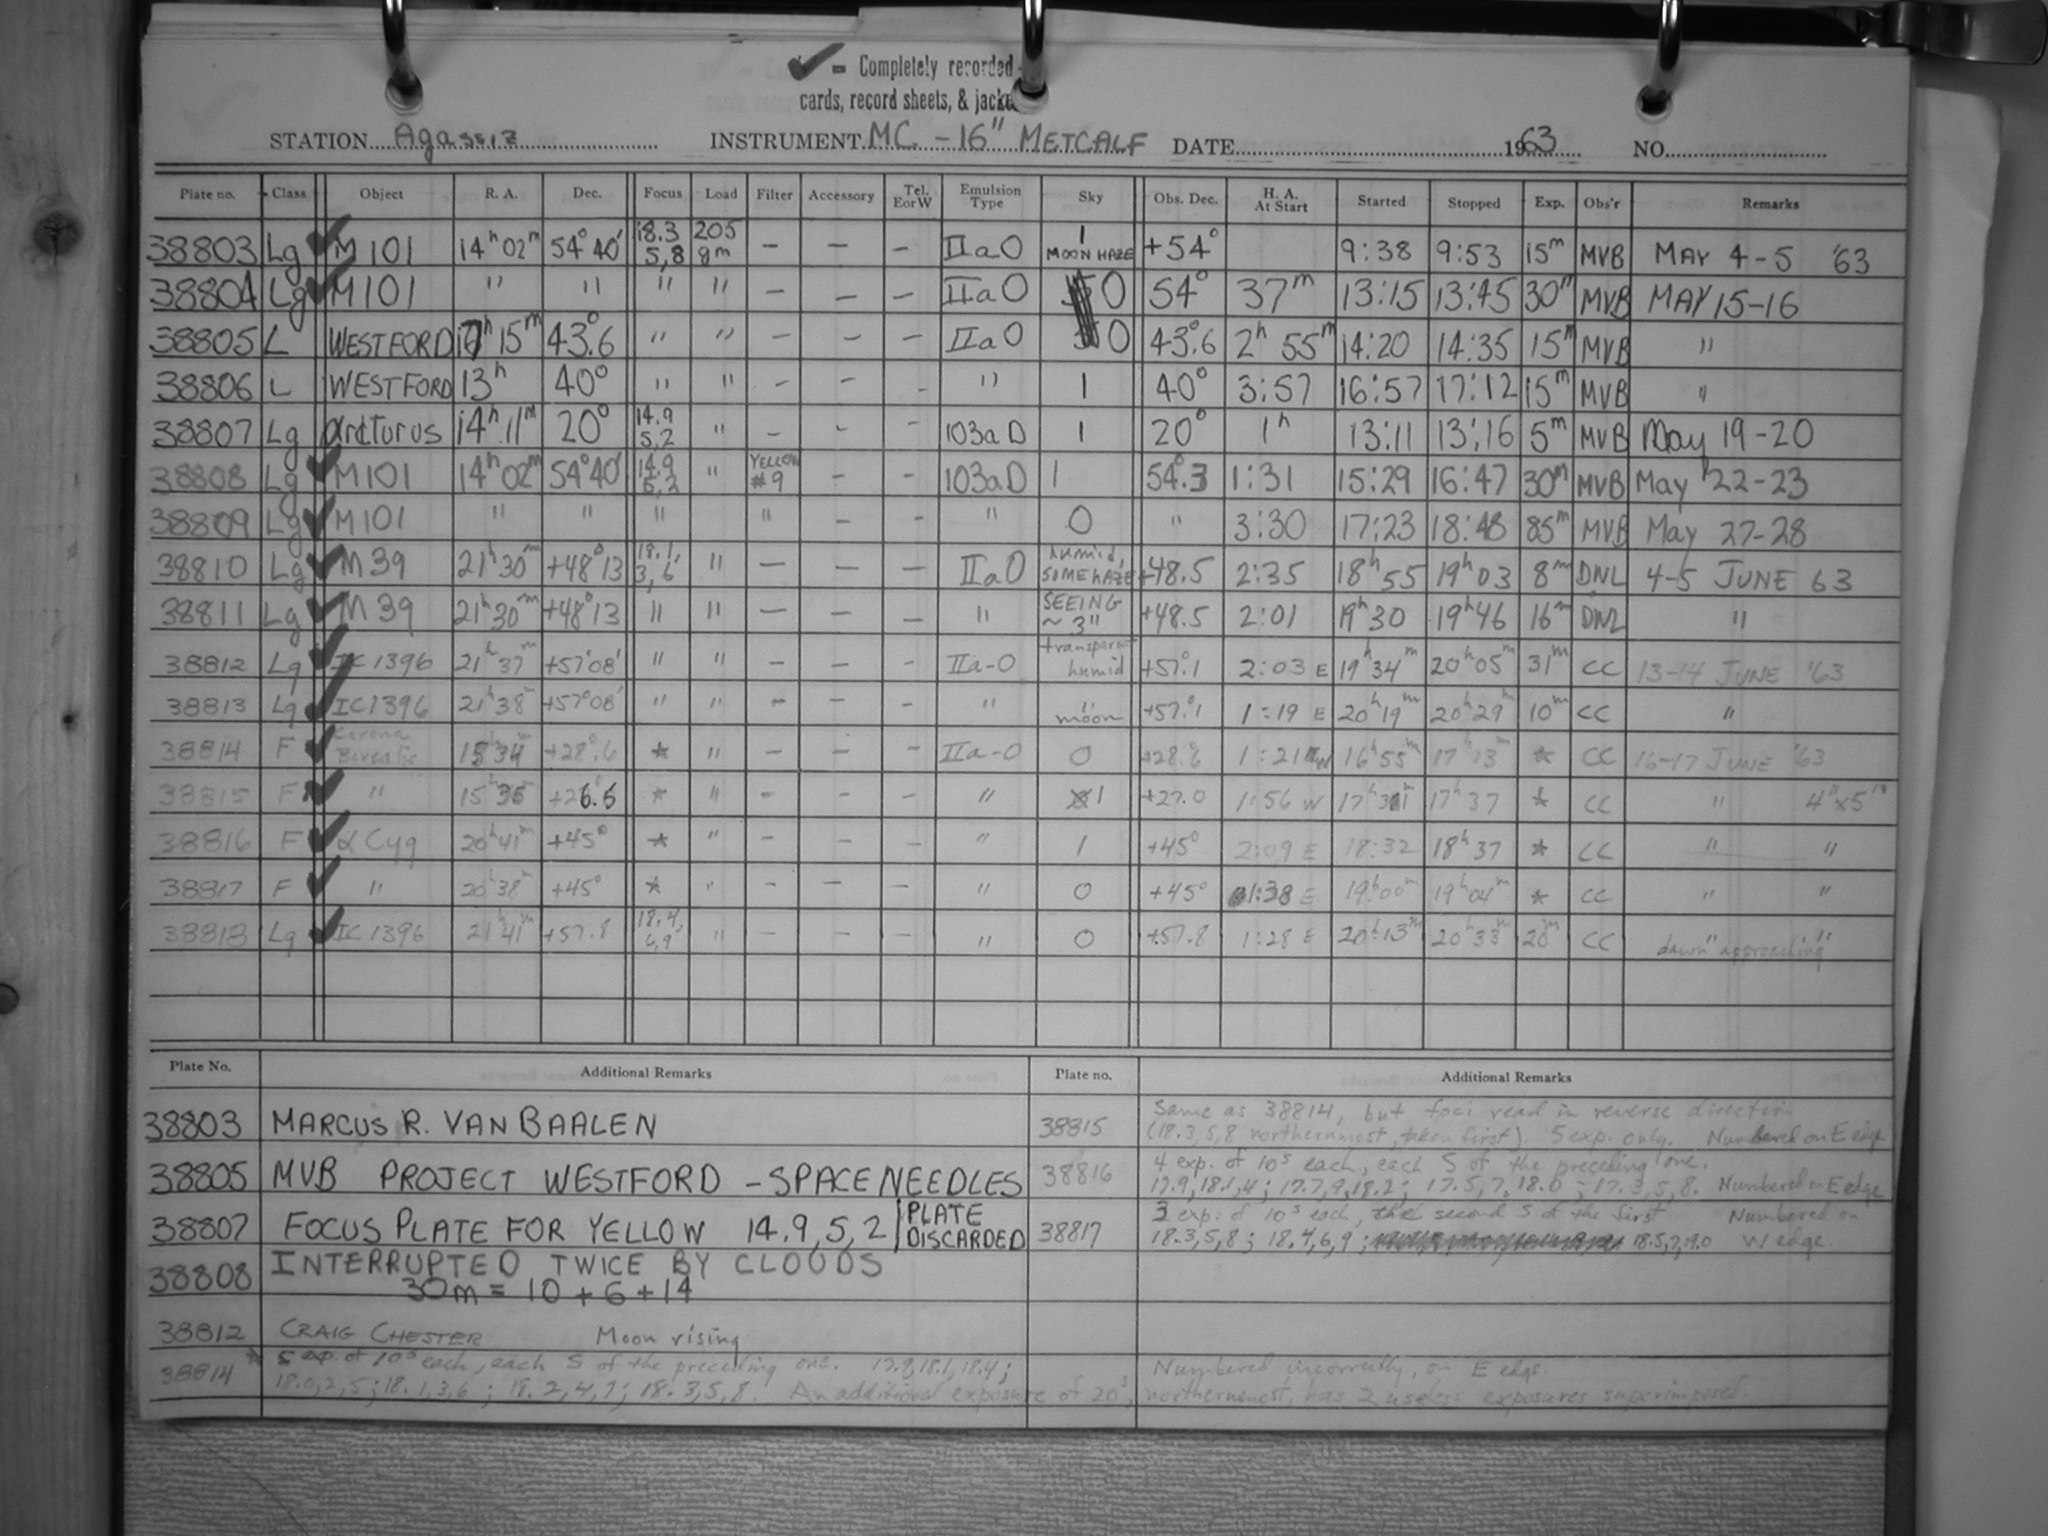 ✓ - Completely recorded -
cards, record sheets, & jacke
STATION Agassiz INSTRUMENT MC. - 16" METCALF DATE 1963 NO.
Plate no. Class Object R. A. Dec. Focus Load Filter Accessory Tel. E or W Emulsion Type Sky Obs. Dec. H. A. At Start Started Stopped Exp. Obs'r Remarks
38803 Lg ✓ M 101 14h 02m 54° 40' 18.3 5,8 205 gm - - - IIaO 1 MOON HAZE +54° 9:38 9:53 15m MVB MAY 4-5 '63
38804 Lg ✓ M101 " " " " - - - IIaO 0 54° 37m 13:15 13:45 30m MVB MAY 15-16
38805 L WESTFORD 17h 15m 43°.6 " " - - - IIaO 0 43°.6 2h 55m 14:20 14:35 15m MVB "
38806 L WESTFORD 13h 40° " " - - - " 1 40° 3:57 16:57 17:12 15m MVB "
38807 Lg arcturus 14h 11m 20° 14.9 5,2 " - - - 103aD 1 20° 1h 13:11 13:16 5m MVB May 19-20
38808 Lg ✓ M101 14h 02m 54°40' 14.9 5,2 " YELLOW #9 - - 103aD 1 54°.3 1:31 15:29 16:47 30m MVB May 22-23
38809 Lg ✓ M101 " " " " - - " 0 " 3:30 17:23 18:48 85m MVB May 27-28
38810 Lg ✓ M 39 21h 30m +48° 13 18.1, 3, 6 " - - - IIaO humid, SOME HAZE +48.5 2:35 18h 55 19h 03 8m DNL 4-5 JUNE 63
38811 Lg ✓ M 39 21h 30m +48° 13 " " - - - " SEEING ~ 3" +48.5 2:01 19h 30 19h 46 16m DNL "
38812 Lg ✓ IC 1396 21h 37m +57°08' " " - - - IIa-O transparent humid +57°.1 2:03 E 19h 34m 20h 05m 31m CC 13-14 JUNE '63
38813 Lg ✓ IC 1396 21h 38m +57°08' " " - - - " " moon +57°.1 1:19 E 20h 19m 20h 29m 10m CC "
38814 F ✓ Corona Borealis 15h 34m +28°.6 * " - - - IIa-O 0 +28.6 1:21 W 16h 55m 17h 13m * CC 16-17 JUNE '63
38815 F ✓ " 15h 36m +26.6 * " - - - " 1 +27.0 1:56 W 17h 31m 17h 37 * CC " 4"x5"
38816 F ✓ α Cyg 20h 41m +45° * " - - - " 1 +45° 2:09 E 18:32 18h 37 * CC " "
38817 F ✓ " 20h 38m +45° * " - - - " 0 +45° 1:38 E 19h 00m 19h 04m * CC " "
38818 Lg ✓ IC 1396 21h 41m +57.8 18.4, 6,9 " - - - " 0 +57.8 1:28 E 20h 13m 20h 33m 20m CC " "
dawn approaching
Plate No. Additional Remarks Plate no. Additional Remarks
38803 MARCUS R. VAN BAALEN
38805 MVB PROJECT WESTFORD - SPACE NEEDLES
38807 FOCUS PLATE FOR YELLOW 14.9,5,2 | PLATE DISCARDED
38808 INTERRUPTED TWICE BY CLOUDS
30m = 10 + 6 + 14
38812 CRAIG CHESTER Moon rising
38814 * 5 exp of 10s each, each S of the preceding one. 17.9,18.1,18.4;
18.0,2,5; 18.1,3,6; 18.2,4,7; 18.3,5,8. An additional exposure of 20s, northernmost, has 2 useless exposures superimposed.
Numbered incorrectly, on E edge.
38815 Same as 38814, but foci read in reverse direction
(18.3,5,8 northernmost, taken first). 5 exp. only. Numbered on E edge
38816 4 exp. of 10s each, each S of the preceding one.
17.9,18.1,4; 17.7,9,18.2; 17.5,7,18.0; 17.3,5,8. Numbered on E edge
38817 3 exp. of 10s each, the second S of the first Numbered on
18.3,5,8; 18.4,6,9; 18.5,7,19.0 W edge.